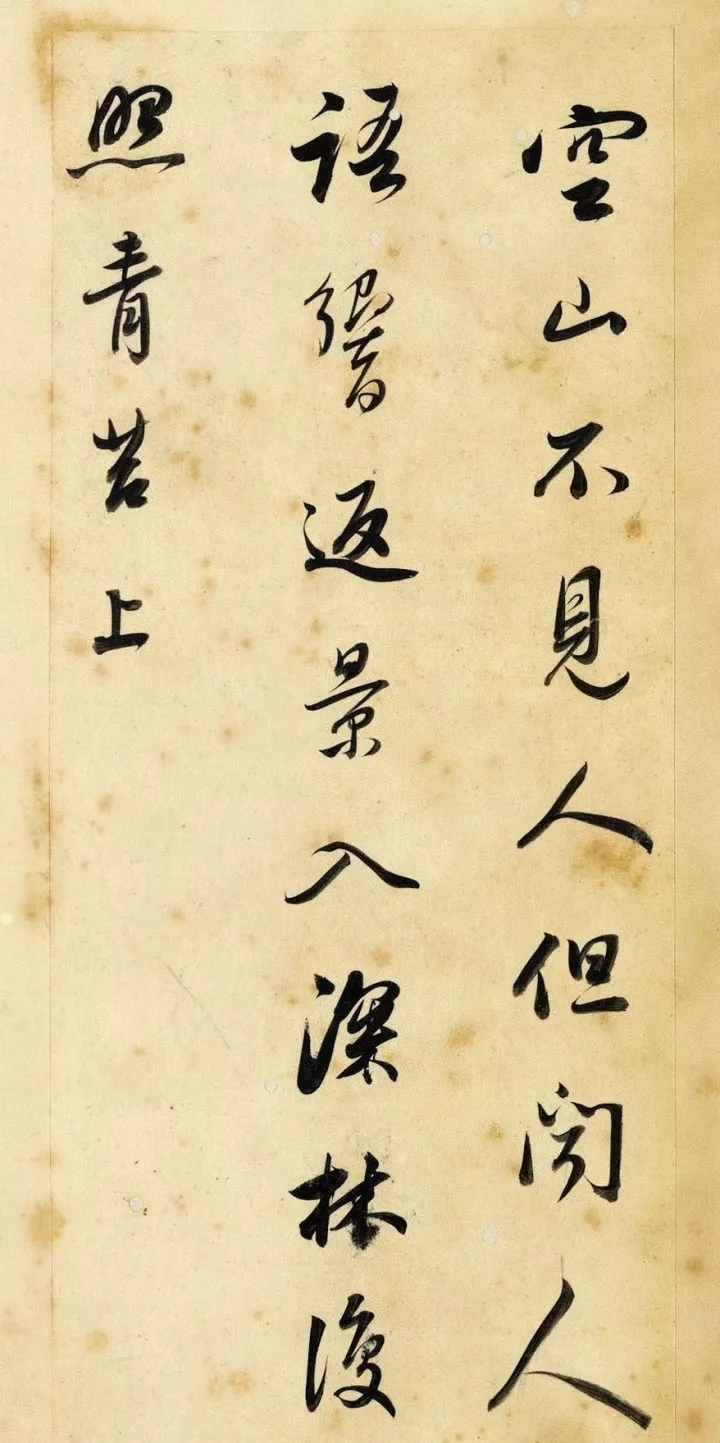 空山不見人但聞人
語響返景入深林復
照青苔上